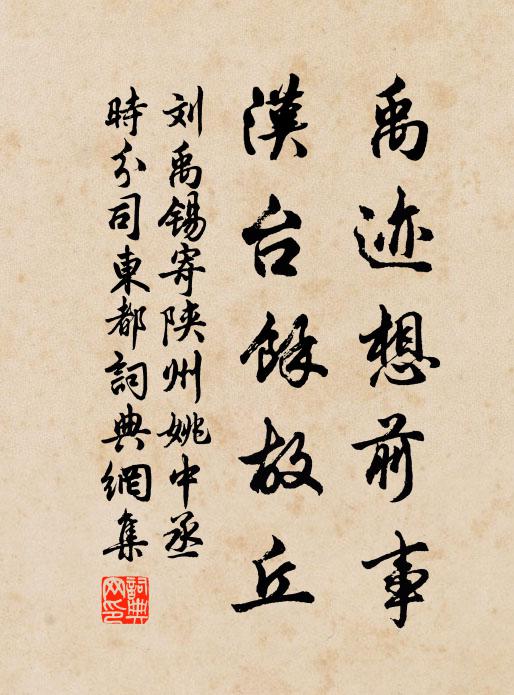 禹迹想前事
漢台餘故丘
刘禹锡寄陕州姚中丞
時分司東都詞典網集
詞典
网印